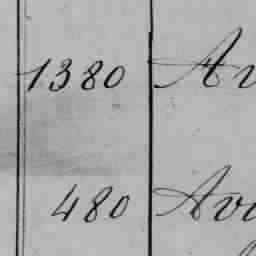 1380 Av
480 Avi